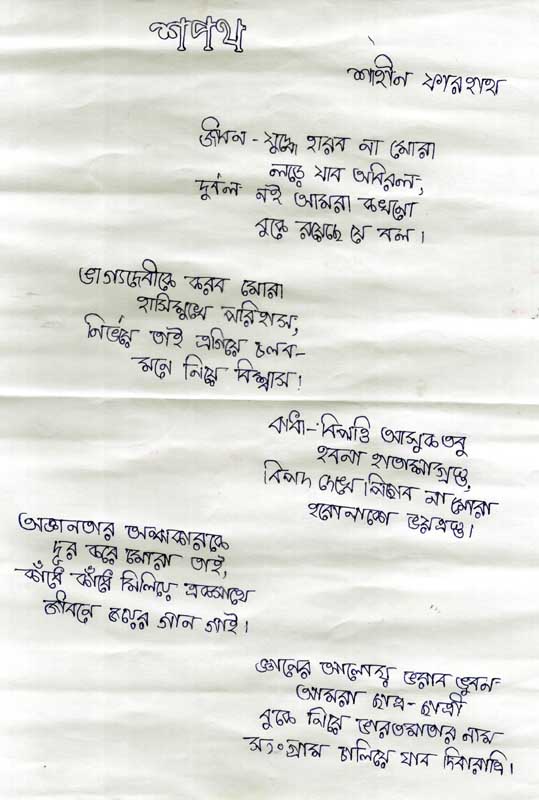 শপথ
শাহীন ফারহাথ
জীবন - যুদ্ধে হারব না মোরা
লড়ে যাব অবিরল,
দুর্বল নই আমরা কখনো
বুকে রয়েছে যে বল।
ভাগ্যদেবীকে করব মোরা
হাসিমুখে পরিহাস,
নির্ভয়ে তাই এগিয়ে চলব-
মনে নিয়ে বিশ্বাস!
বাধা-বিপত্তি আসুক তবু
হবনা হতাশাগ্রস্ত,
বিপদ দেখে পিছাব না মোরা
হবোনাকো ভয়ত্রস্ত।
অজ্ঞানতার অন্ধকারকে
দূর করে মোরা তাই,
কাঁধে কাঁধ মিলিয়ে একসাথে
জীবনে জয়ের গান গাই।
জ্ঞানের আলোয় ভরাব ভুবন
আমরা ছাত্র-ছাত্রী
বুকে নিয়ে ভারতমাতার নাম
সংগ্রাম চালিয়ে যাব দিবারাত্রি।